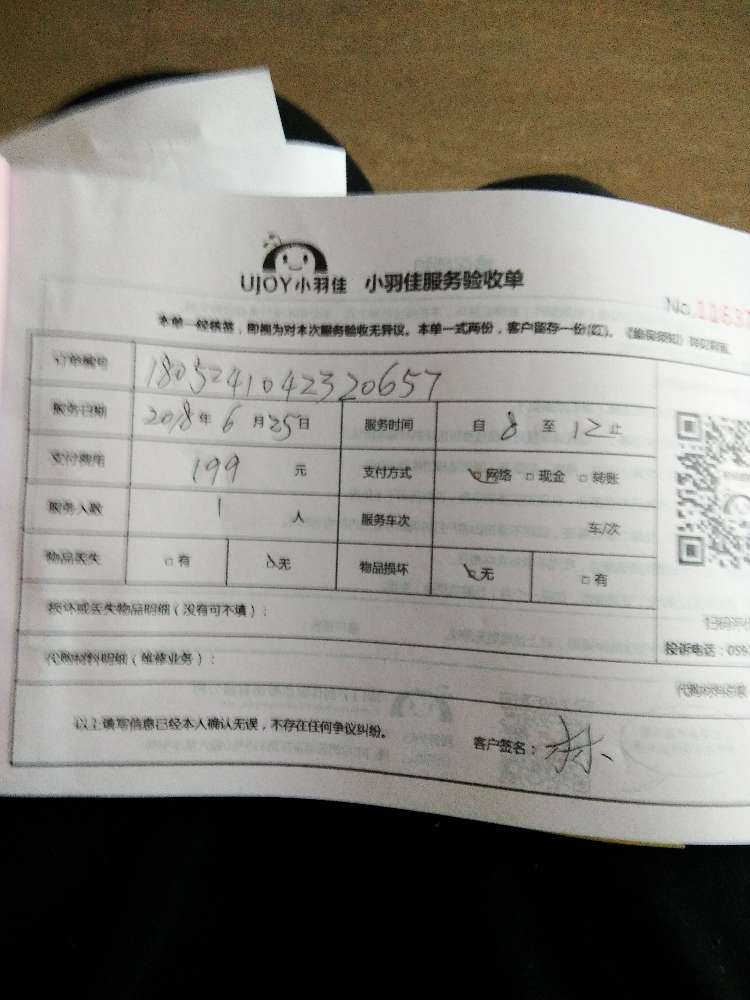 UJOY小羽佳 小羽佳服务验收单
No.11637
本单一经核签，即视为对本次服务验收无异议。本单一式两份，客户留存一份(红)。
订单编号 1805241042320657
服务日期 2018年6月25日 服务时间 自8至12止
支付费用 199元 支付方式 网络 □现金 □转账
服务人数 1人 服务车次 车/次
物品丢失 □有 无 物品损坏 无 □有
损坏或丢失物品明细（没有可不填）：
扫码评价
投诉电话：059
代购材料明细（维修业务）：
代购材料
以上填写信息已经本人确认无误，不存在任何争议纠纷。
客户签名：